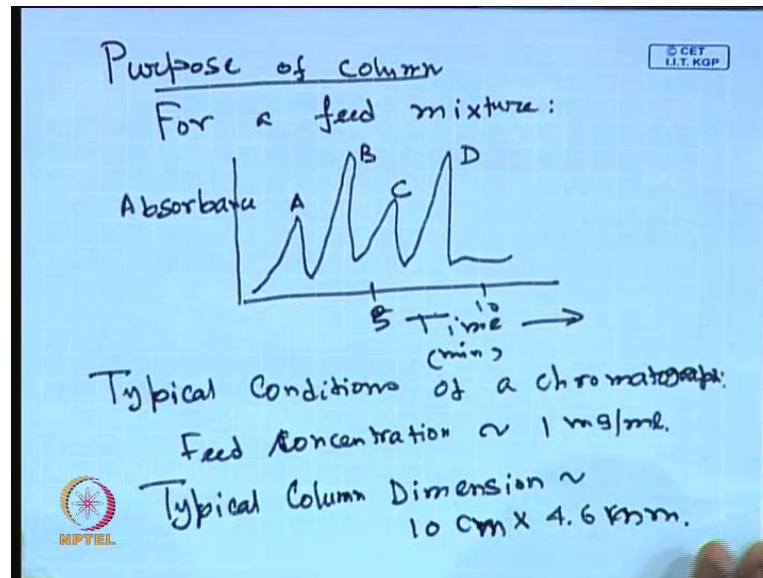 Purpose of column
© CET
I.I.T. KGP
For a feed mixture:
Absorbance
A
B
C
D
5
10
Time
(min)
Typical Conditions of a chromatograph:
Feed Concentration ~ 1 mg/ml.
Typical Column Dimension ~
10 cm x 4.6 mm.
NPTEL